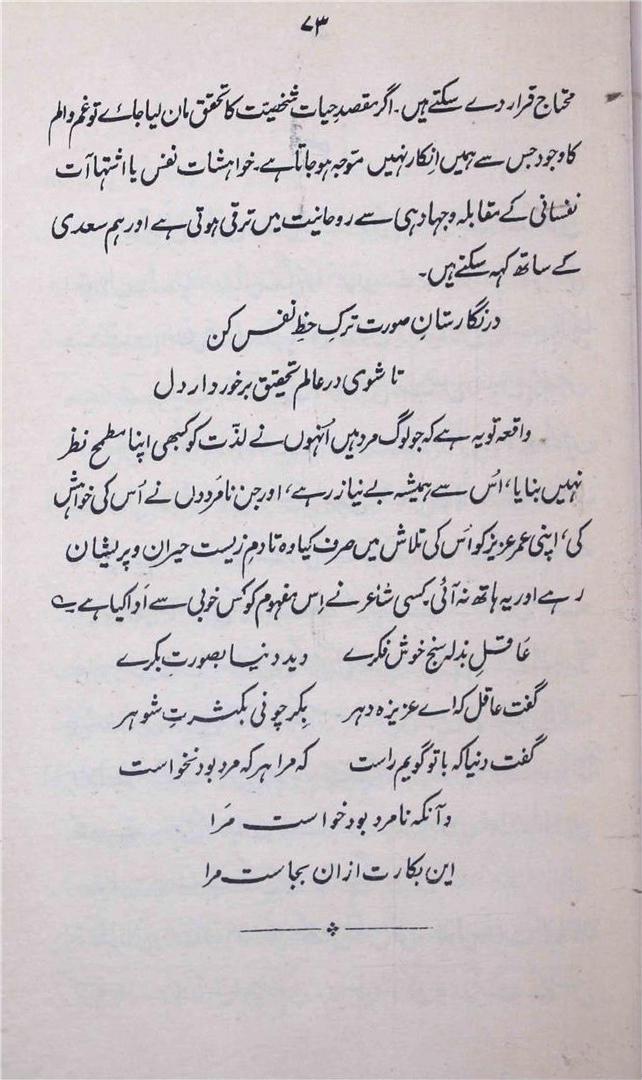 ۷۳
محتاج قرار دے سکتے ہیں۔ اگر مقصدِ حیات شخصیّت کا تحقق مان لیا جائے تو غم و الم
کا وجود جس سے ہمیں انکار نہیں متوجہ ہو جاتا ہے۔ خواہشات نفس یا اشتہا آت
نفسانی کے مقابلہ و جہاد ہی سے روحانیت میں ترقی ہوتی ہے اور ہم سعدی
کے ساتھ کہہ سکتے ہیں۔
در نگارستانِ صورت ترکِ حظِ نفس کن
تا شوی در عالم تحقیق برخوردار دل
واقعہ تو یہ ہے کہ جو لوگ مرد ہیں اُنہوں نے لذّت کو کبھی اپنا مطمح نظر
نہیں بنایا، اُس سے ہمیشہ بے نیاز رہے، اور جن نامَردوں نے اُس کی خواہش
کی، اپنی عمر عزیز کو اُس کی تلاش میں صرف کیا وہ تادم زیست حیران و پریشان
رہے اور یہ ہاتھ نہ آئی۔ کسی شاعر نے اِس مفہوم کو کس خوبی سے اَدا کیا ہے ؎
عاقلِ بذلہ سنج خوش فکرے دید دنیا بصورتِ بکرے
گفت عاقل کہ اے عزیزہ دہر بِکر چونی بکثرتِ شوہر
گفت دنیا کہ با تو گویم راست کہ مرا ہر کہ مرد بود نخواست
و آنکہ نامرد بود خواست مَرا
این بکارت ازان بجاست مرا